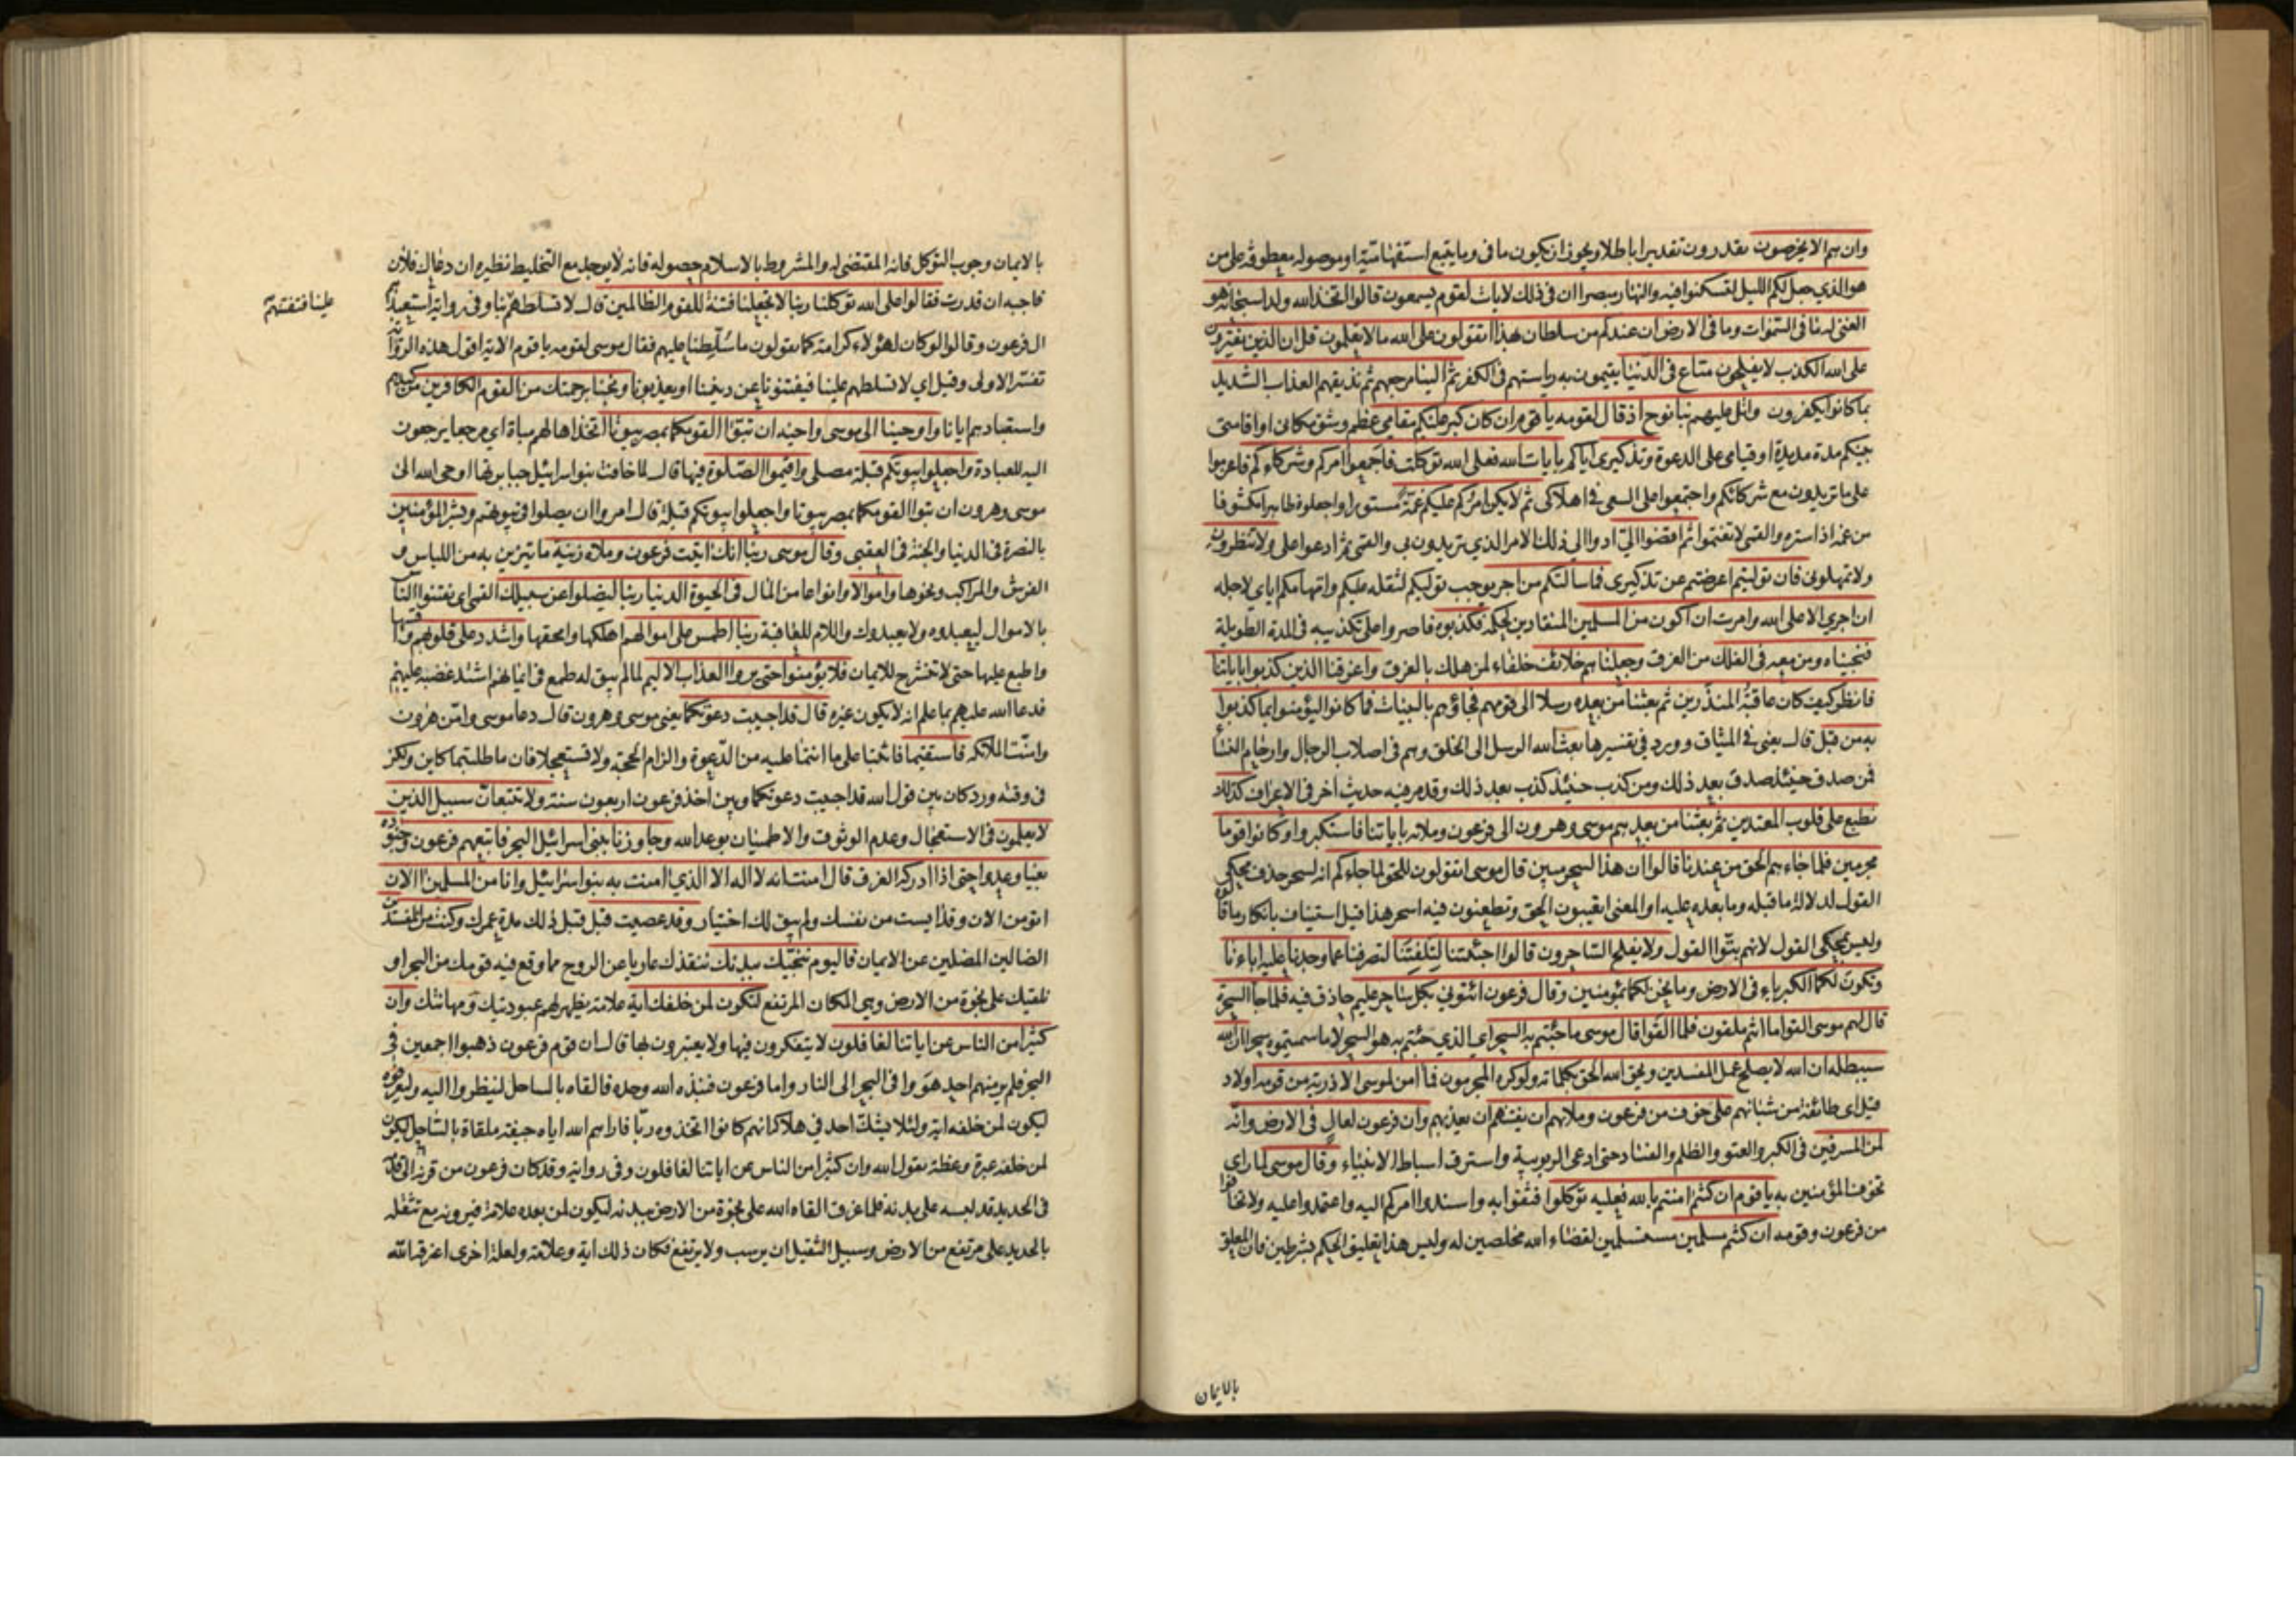 وان هم الا يخرصون يقدرون تقديرا باطلا ويجوز ان يكون ما في وما يتبع استفهامية او موصوله معطوفة على من
هو الذي جعل لكم الليل لتسكنوا فيه والنهار مبصرا ان في ذلك لايات لقوم يسمعون قالوا اتخذ الله ولدا سبحانه هو
الغني له ما في السموات وما في الارض ان عندكم من سلطان بهذا اتقولون على الله ما لا يعلمون قل ان الذين يفترون
على الله الكذب لا يفلحون متاع في الدنيا يقيمون به رياستهم في الكفر ثم الينا مرجعهم ثم نذيقهم العذاب الشديد
بما كانوا يكفرون واتل عليهم نبأ نوح اذ قال لقومه يا قوم ان كان كبر عليكم مقامي عظم وشق مكاني او اقامتي
بينكم مدة مديدة او قيامي على الدعوة وتذكيري اياكم بآيات الله فعلى الله توكلت فاجمعوا امركم وشركاءكم فاعزموا
على ما تريدون مع شركائكم واجتمعوا على السعي في اهلاكي ثم لا يكن امركم عليكم غمة مستورا واجعلوه ظاهرا مكشوفا
من غمه اذا ستره والقمي لا تغتموا ثم اقضوا الي ادوا الي ذلك الامر الذي تريدون بي والقمي ثم ادعوا علي ولا تنظرون
ولا تمهلوني فان توليتم اعرضتم عن تذكيري فما سالتكم من اجر يوجب توليكم لثقله عليكم واتهامكم اياي لاجله
ان اجري الا على الله وامرت ان اكون من المسلمين المنقادين لحكمه فكذبوه فاصروا على تكذيبه في المدة الطويلة
فنجيناه ومن معه في الفلك من الغرق وجعلناهم خلائف خلفاء لمن هلك بالغرق واغرقنا الذين كذبوا باياتنا
فانظر كيف كان عاقبة المنذرين ثم بعثنا من بعده رسلا الى قومهم فجاؤهم بالبينات فما كانوا ليؤمنوا بما كذبوا
به من قبل قال يعني في الميثاق وورد في تفسيرها بعث الله الرسل الى الخلق وهم في اصلاب الرجال وارحام النساء
فمن صدق حينئذ صدق بعد ذلك ومن كذب حينئذ كذب بعد ذلك وقد مر فيه حديث اخر في الاعراف كذلك
نطبع على قلوب المعتدين ثم بعثنا من بعدهم موسى وهرون الى فرعون وملائه باياتنا فاستكبروا وكانوا قوما
مجرمين فلما جاءهم الحق من عندنا قالوا ان هذا لسحر مبين قال موسى اتقولون للحق لما جاءكم انه لسحر حذف محكي
القول لدلالة ما قبله وما بعده عليه او المعنى اتعيبون الحق وتطعنون فيه اسحر هذا قيل استيناف بانكار ما قالوه
وليس بمحكي القول لانهم بتوا القول ولا يفلح الساحرون قالوا اجئتنا لتلفتنا لتصرفنا عما وجدنا عليه اباءنا
وتكون لكما الكبرياء في الارض وما نحن لكما بمؤمنين وقال فرعون ائتوني بكل ساحر عليم حاذق فيه فلما جاء السحرة
قال لهم موسى القوا ما انتم ملقون فلما القوا قال موسى ما جئتم به السحر اي الذي جئتم به هو السحر لا ما سميتموه سحرا ان الله
سيبطله ان الله لا يصلح عمل المفسدين ويحق الله الحق بكلماته ولو كره المجرمون فما امن لموسى الا ذرية من قومه اولاد
قيل اي طائفة من شبانهم على خوف من فرعون وملائهم ان يفتنهم ان يعذبهم وان فرعون لعال في الارض وانه
لمن المسرفين في الكبر والعتو والظلم والفساد حتى ادعى الربوبية واسترق اسباط الانبياء وقال موسى لما راى
تخوف المؤمنين به يا قوم ان كنتم امنتم بالله فعليه توكلوا فثقوا به واسندوا امركم اليه واعتمدوا عليه ولا تخافوا
من فرعون وقومه ان كنتم مسلمين مستسلمين لقضاء الله مخلصين له وليس هذا تعليق الحكم بشرطين فان المعلق
بالايمان
بالايمان وجوب التوكل فانه المقتضي له والمشروط بالاسلام حصوله فانه لا يوجد مع التخليط نظيره ان دعاك فلان
فاجبه ان قدرت فقالوا على الله توكلنا ربنا لا تجعلنا فتنة للقوم الظالمين قال لا تسلطهم علينا فتفتنهم بنا وفي رواية استعبدهم
ال فرعون وقالوا لو كان لهؤلاء كرامة كما يقولون ما سلطنا عليهم فقال موسى لقومه يا قوم الاية اقول هذه الرواية
تفسر الاولى وقيل اي لا تسلطهم علينا فيفتنونا عن ديننا او يعذبونا ونجنا برحمتك من القوم الكافرين من كيدهم
واستعبادهم ايانا واوحينا الى موسى واخيه ان تبوءا لقومكما بمصر بيوتا اتخذاها لهم مباءة اي مرجعا يرجعون
اليه للعبادة واجعلوا بيوتكم قبلة مصلى واقيموا الصلوة فيها قال لما خافت بنو اسرائيل جبابرتها اوحى الله الى
موسى وهرون ان تبوءا لقومكما بمصر بيوتا واجعلوا بيوتكم قبلة قال امروا ان يصلوا في بيوتهم وبشر المؤمنين
بالنصرة في الدنيا والجنة في العقبى وقال موسى ربنا انك اتيت فرعون وملاه زينة ما يتزين به من اللباس و
الفرش والمراكب ونحوها واموالا وانواعا من المال في الحيوة الدنيا ربنا ليضلوا عن سبيلك القمي اي يفتنوا الناس
بالاموال ليعبدوه ولا يعبدوك واللام للعاقبة ربنا اطمس على اموالهم اهلكها وامحقها واشدد على قلوبهم قسها
واطبع عليها حتى لا تنشرح للايمان فلا يؤمنوا حتى يروا العذاب الاليم لما لم يبق له طمع في ايمانهم اشتد غضبه عليهم
فدعا الله عليهم بما علم انه لا يكون غيره قال قد اجيبت دعوتكما يعني موسى وهرون قال دعا موسى وامن هرون
وامنت الملائكة فاستقيما فاثبتا على ما انتما عليه من الدعوة والزام الحجة ولا تستعجلا فان ما طلبتما كاين ولكن
في وقته ورد كان بين قول الله قد اجيبت دعوتكما وبين اخذ فرعون اربعون سنة ولا تتبعان سبيل الذين
لا يعلمون في الاستعجال وعدم الوثوق والاطمينان بوعد الله وجاوزنا ببني اسرائيل البحر فاتبعهم فرعون وجنوده
بغيا وعدوا حتى اذا ادركه الغرق قال امنت انه لا اله الا الذي امنت به بنو اسرائيل وانا من المسلمين الان
اتؤمن الان وقد ايست من نفسك ولم يبق لك اختيار وقد عصيت قبل قبل ذلك مدة عمرك وكنت من المفسدين
الضالين المضلين عن الايمان فاليوم ننجيك ببدنك ننقذك عاريا عن الروح مما وقع فيه قومك من البحر او
نلقيك على نجوة من الارض وهي المكان المرتفع لتكون لمن خلفك اية علامة يظهر لهم عبوديتك ومهانتك وان
كثيرا من الناس عن اياتنا لغافلون لا يتفكرون فيها ولا يعتبرون بها قال ان قوم فرعون ذهبوا اجمعين في
البحر فلم ير منهم احد هووا في البحر الى النار واما فرعون فنبذه الله وحده فالقاه بالساحل لينظروا اليه وليعرفوه
ليكون لمن خلفه اية ولئلا يشك احد في هلاكه انهم كانوا اتخذوه ربا فاراهم الله اياه جيفة ملقاة بالساحل ليكون
لمن خلفه عبرة وعظة يقول الله وان كثيرا من الناس عن اياتنا لغافلون وفي رواية وقد كان فرعون من قرنه الى قدمه
في الحديد قد لبسه على بدنه فلما غرق القاه الله على نجوة من الارض ببدنه ليكون لمن بعده علامة فيرونه مع تثقله
بالحديد على مرتفع من الارض وسبيل الثقيل ان يرسب ولا يرتفع فكان ذلك اية وعلامة ولعلة اخرى اغرقه الله
علينا فتفتنهم